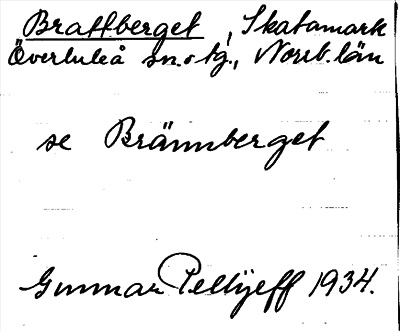 Brattberget, Skatamark
Överluleå sn. o tg., Norrb. län
se Brännberget
Gunnar Pellijeff 1934.